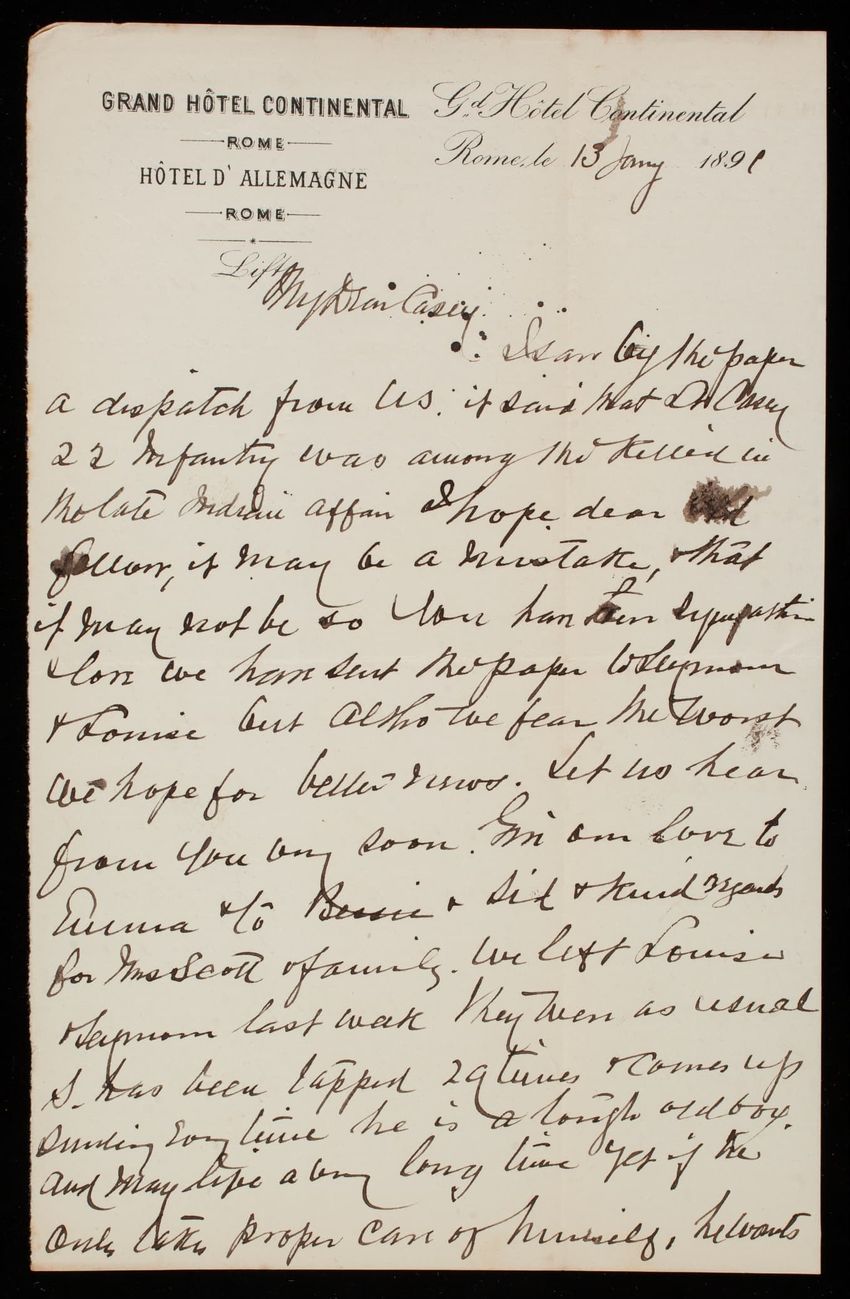 GRAND HÔTEL CONTINENTAL
ROME
HÔTEL D' ALLEMAGNE
ROME
Lift
Gd. Hôtel Continental
Rome, le 13 Jany 1891
My Dear Casey
I saw by the paper
a dispatch from US. it said that Lt Casey
22 Infantry was among the killed in
the late Indian affair I hope dear old
fellow, it may be a mistake, & that
it may not be so You have our sympathies
& love we have sent the paper to Seymour
& Louise but altho we fear the worst
we hope for better news. Let us hear
from you very soon. Give our love to
Emma & to Bessie & Sid & kind regards
for Mrs Scott & family. We left Louise
& Seymour last week they were as usual
S. has been tapped 29 times & comes up
smiling every time he is a tough old boy.
and may live a very long time yet if he
only takes proper care of himself, he wants